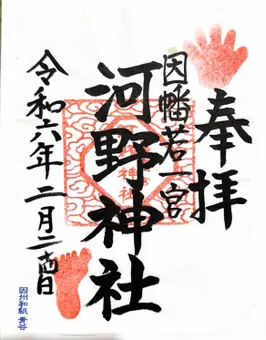 奉拝
因幡若一宮
河野神社
令和六年二月二十四日
因州和紙 青谷